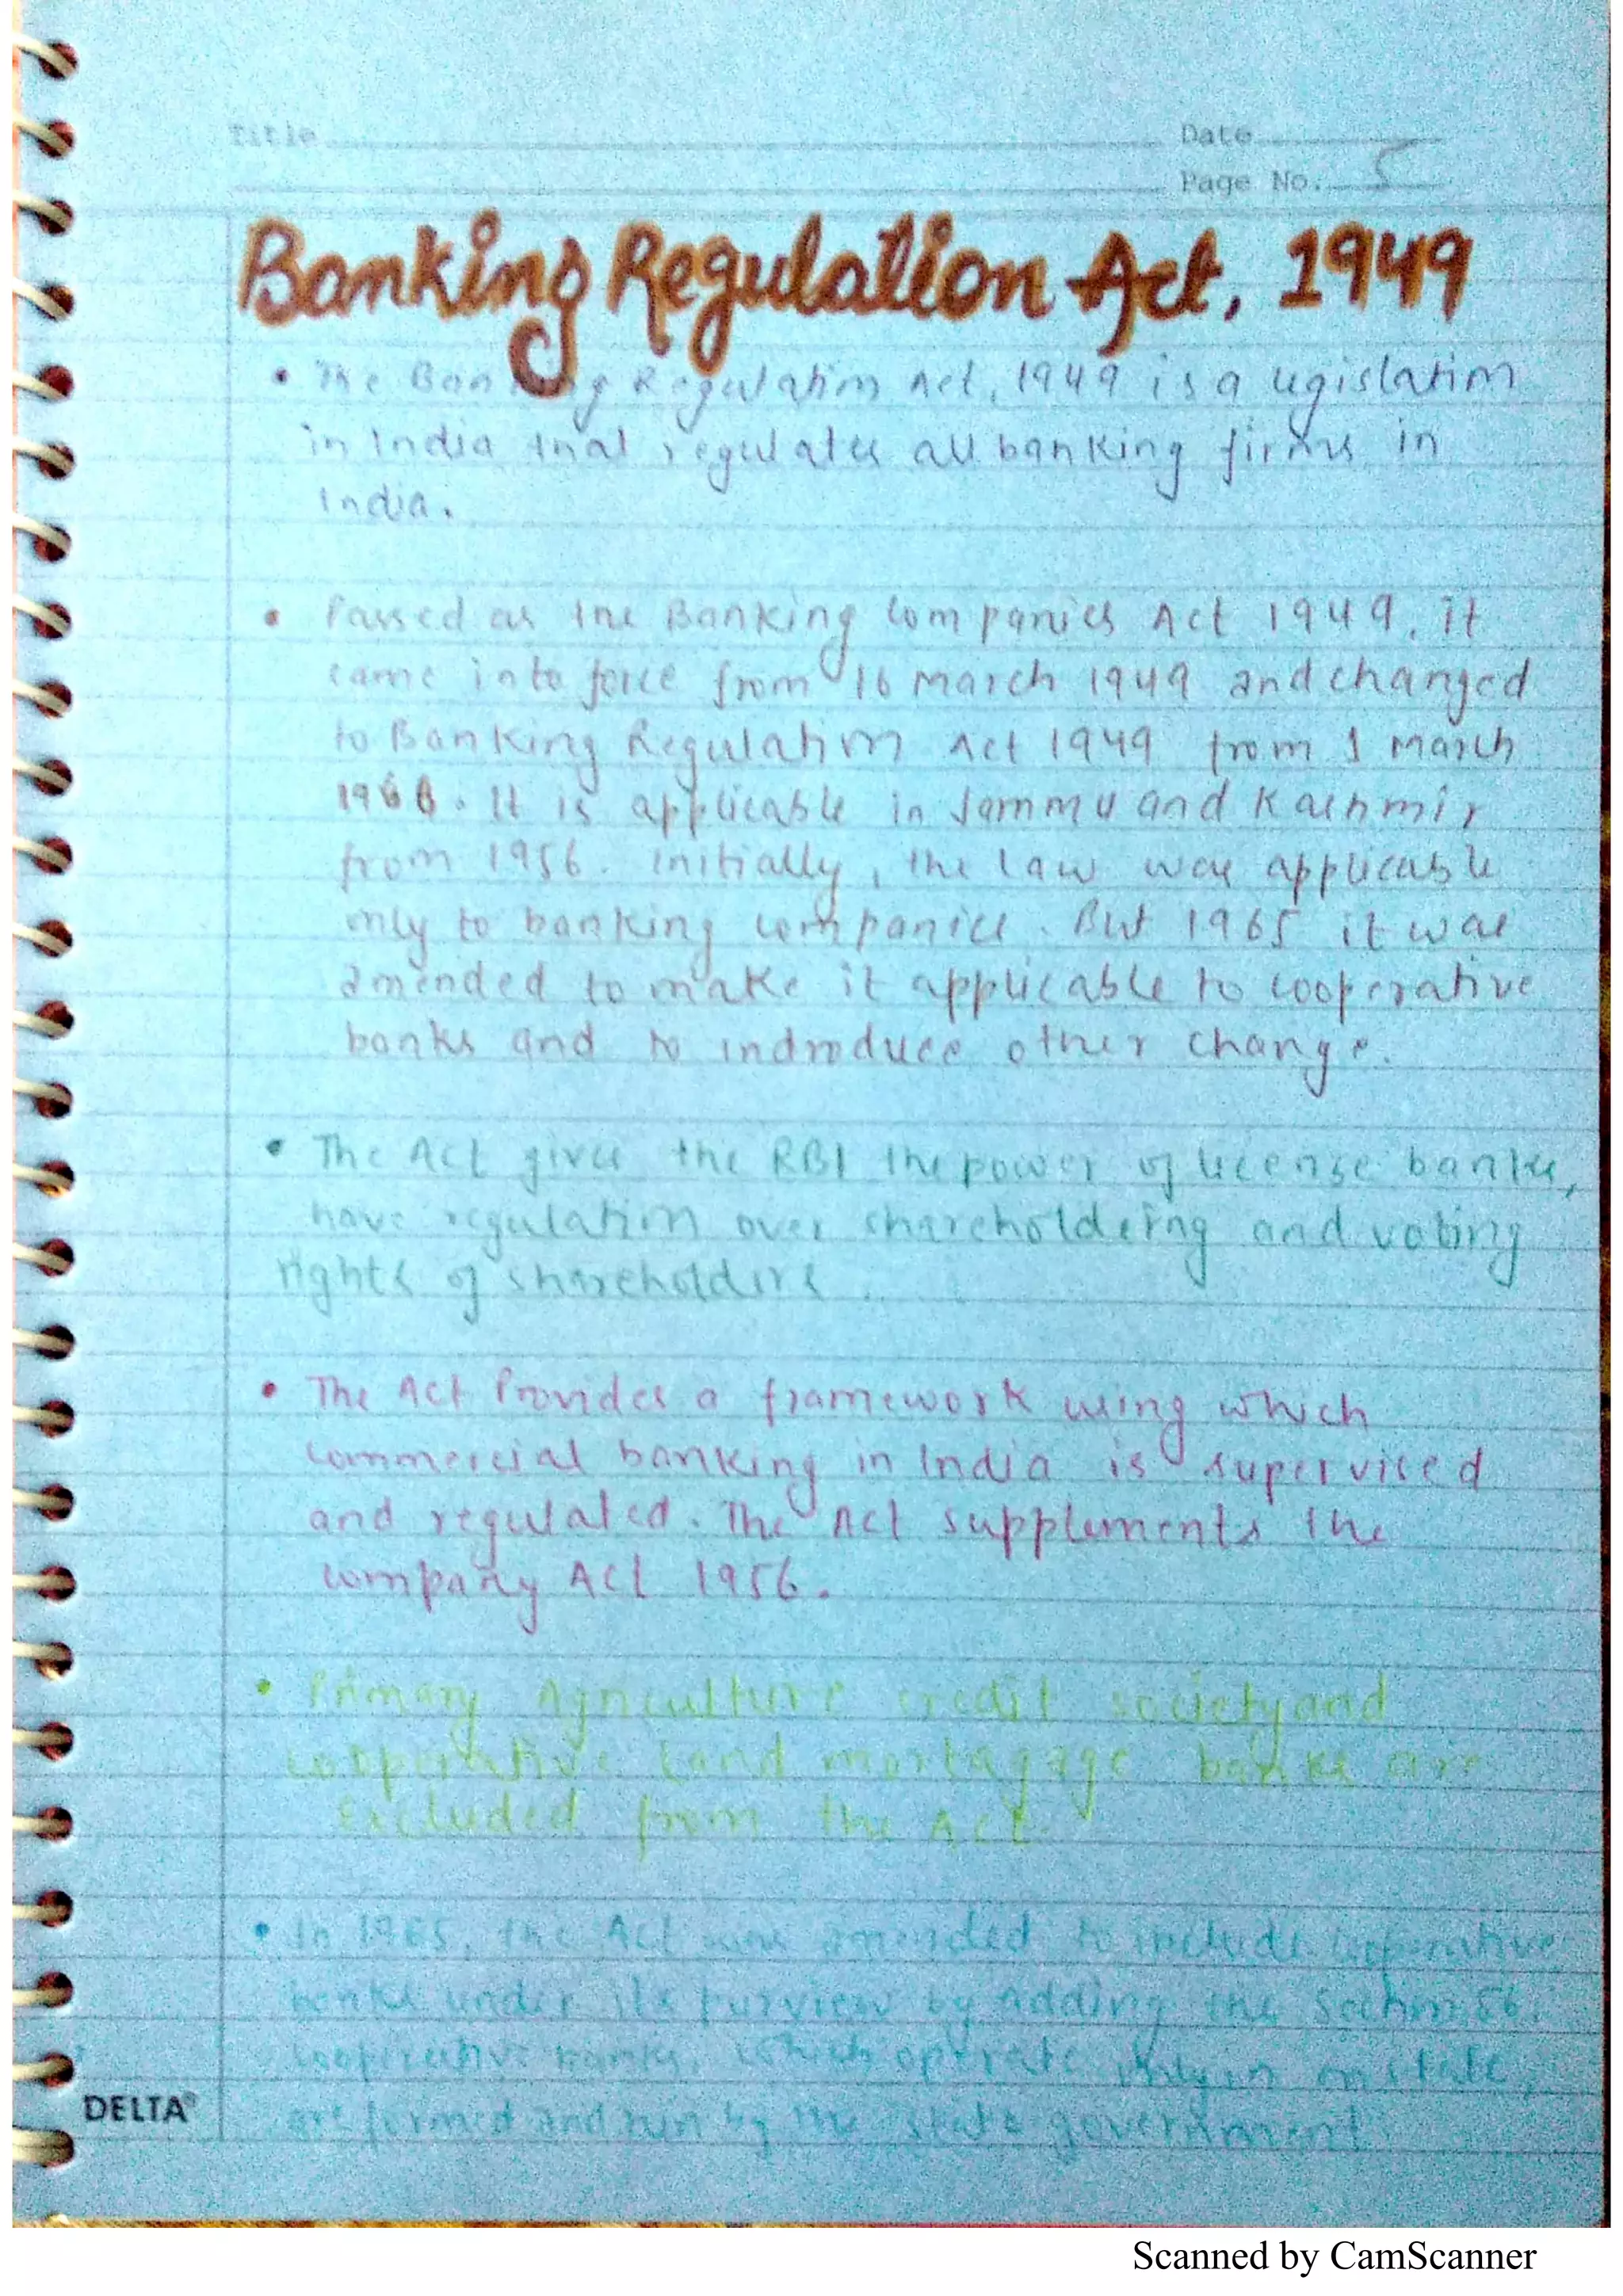 Title Date
Page No. 5
Banking Regulation Act, 1949
• The Banking Regulation Act, 1949 is a legislation
in India that regulates all banking firms in
India.
• Passed as the Banking Companies Act 1949, it
came into force from 16 March 1949 and changed
to Banking Regulation Act 1949 from 1 March
1966. It is applicable in Jammu and Kashmir
from 1956. Initially, the law was applicable
only to banking companies. But 1965 it was
amended to make it applicable to cooperative
banks and to indroduce other change.
• The Act gives the RBI the power of license banks,
have regulation over shareholdering and voting
rights of shareholders.
• The Act Provides a framework using which
commercial banking in India is supervised
and regulated. The Act supplements the
company Act 1956.
• Primary Agriculture credit society and
cooperative land mortagage banks are
Excluded from the Act.
• In 1965, the Act was amended to include cooperative
banks under its purview by adding the Section 56.
Cooperative banks, which operate only in state,
are formed and run by the state government
DELTA
Scanned by CamScanner